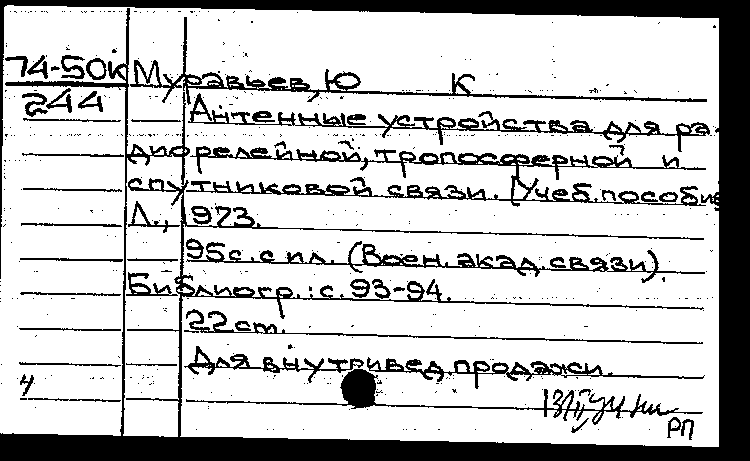 74-50к Муравьев, Ю К
244 Антенные устройства для ра-
диорелейной, тропосферной и
спутниковой связи. [Учеб. пособие
Л., 1973.
95с. с ил. (Воен. акад. связи).
Библиогр.: с. 93-94.
22 см.
Для внутривед. продажи.
4
РП